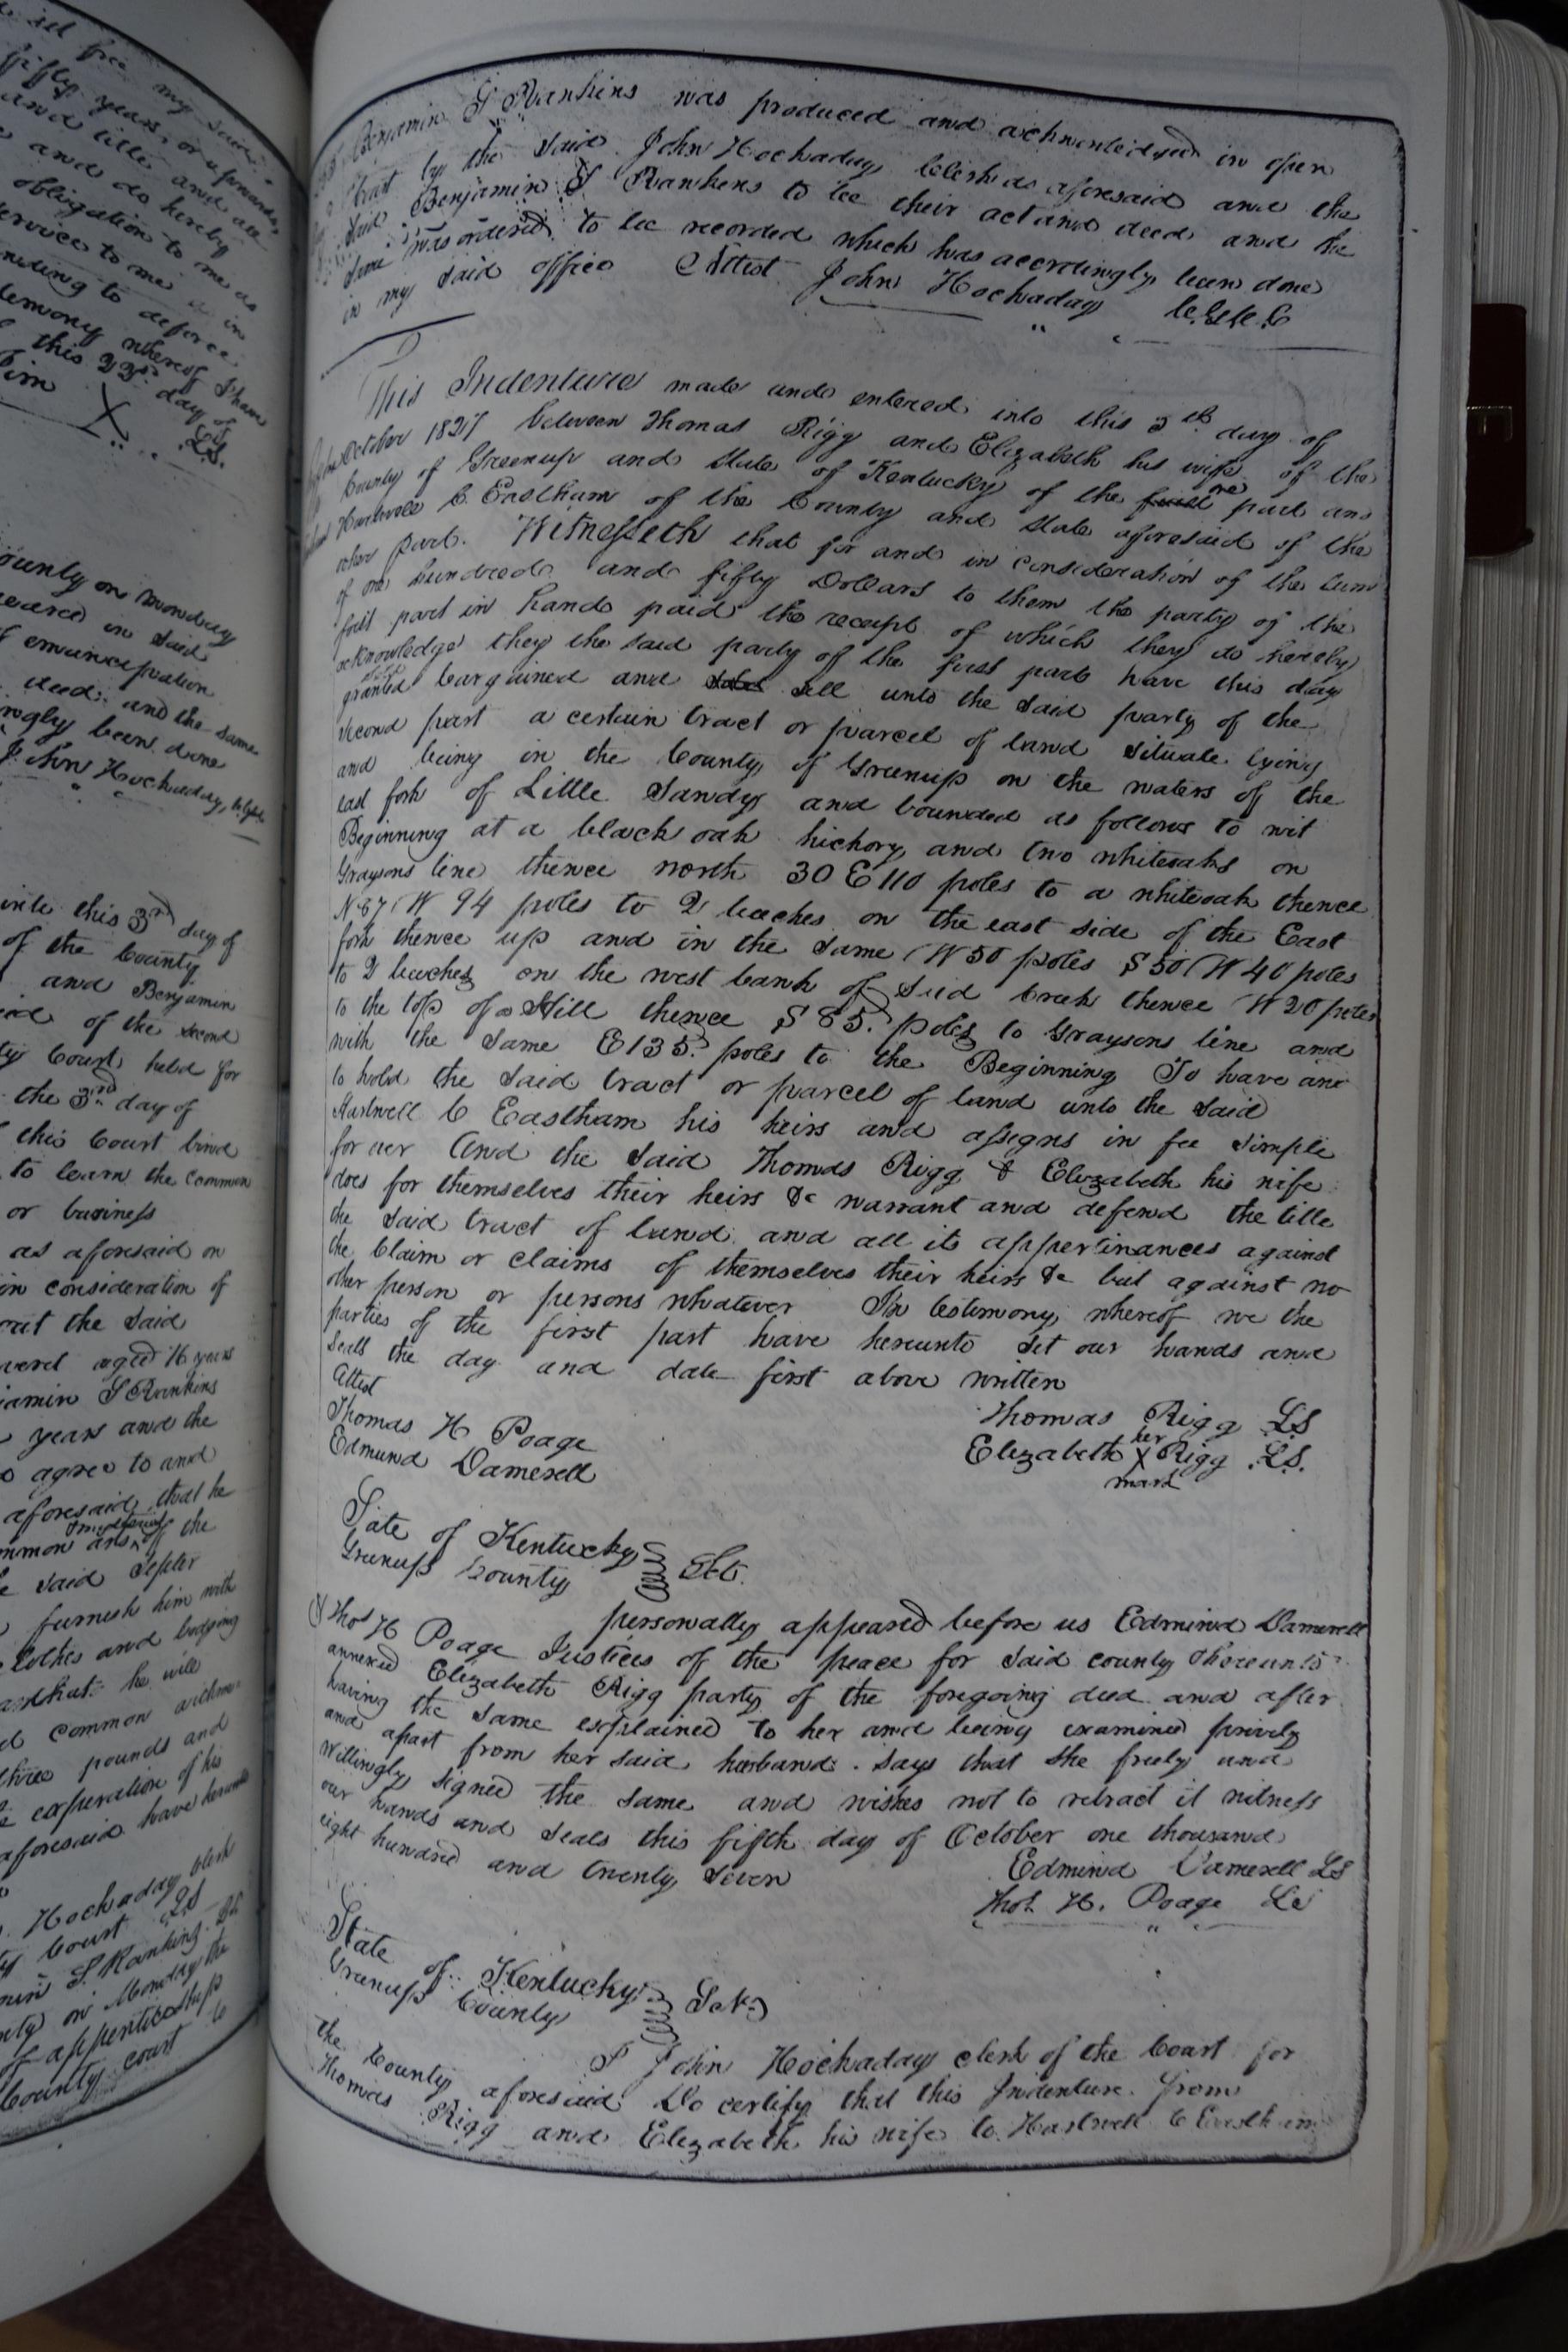 set free my said
fifty years, or upwards,
and title and all
and do hereby
obligation to me as
service to me in
ending to deforce
temony whereof I have
this 23rd day of
Jim X LS.
County on Monday
eared in said
f emancipation
deed: and the same
ingly been done
John Hockaday,
into this 3rd day of
of the County
and Benjamin
of the second
ty Court held for
the 3rd day of
this Court bind
to learn the common
or business
as aforesaid on
in consideration of
out the said
aged 16 years
jamin S Rankins
years and the
agree to and
aforesaid, that he
mmon of the
said
furnish him with
lothes and lodging
and that he will
d common arithme
three pounds and
expiration of his
aforesaid have hereunto
Hockaday Clerk
ty Court LS
min S. Rankins LS
nty on Monday the
of apprenticeship
County court
Benjamin S Rankins was produced and acknowledged in open
Court by the said John Hockaday Clerk as aforesaid and the
said Benjamin S Rankens to be their act and deed and the
same was ordered to be recorded which has accordingly been done
in my said office Attest John Hockaday C.G.C.C
This Indenture made and entered into this 5th day of
October 1827 between Thomas Rigg and Elizabeth his wife of the
County of Greenup and State of Kentucky of the one part and
Hartwell C Eastham of the County and State aforesaid of the
other part. Witnesseth that for and in consideration of the sum
of one hundred and fifty Dollars to them the party of the
first part in hand paid the receipt of which they do hereby
acknowledge they the said party of the first part have this day
granted bargained and sell unto the said party of the
second part a certain tract or parcel of land situate lying
and being in the County of Greenup on the waters of the
east fork of Little Sandy and bounded as follows to wit
Beginning at a black oak hickory and two whiteoaks on
Graysons line thence north 30 E 110 poles to a whiteoak thence
N 67 W 94 poles to 2 beaches on the east side of the East
fork thence up and in the same W 50 poles S 50 W 40 poles
to 2 beaches on the west bank of Said Creek thence W 20 poles
to the top of a Hill thence S 85. poles to Graysons line and
with the same E 135. poles to the Beginning To have and
to hold the said tract or parcel of land unto the said
Hartwell C Eastham his heirs and assigns in fee simple
for ever And the said Thomas Rigg & Elizabeth his wife
does for themselves their heirs &c warrant and defend the title
the said tract of land and all its appertinances against
the Claim or claims of themselves their heirs &c but against no
other person or persons whatever In testimony whereof we the
parties of the first part have hereunto set our hands and
seals the day and date first above written
Attest
Thomas H Poage Thomas Rigg LS
Edmund Damerell Elizabeth her X mark Rigg LS.
State of Kentucky
Greenup County Sct.
personally appeared before us Edmund Damerell
& Thos H Poage Justices of the peace for said county thereunto
annexed Elizabeth Rigg party of the foregoing deed and after
having the same explained to her and being examined privily
and apart from her said husband. says that she freely and
willingly signed the same and wishes not to retract it witness
our hands and seals this fifth day of October one thousand
eight hundred and twenty seven Edmund Damerell LS
Thos. H. Poage LS
State of Kentucky
Greenup County Sct
I John Hockaday clerk of the Court for
the County aforesaid Do certify that this Indenture from
Thomas Rigg and Elizabeth his wife to Hartwell C Eastham